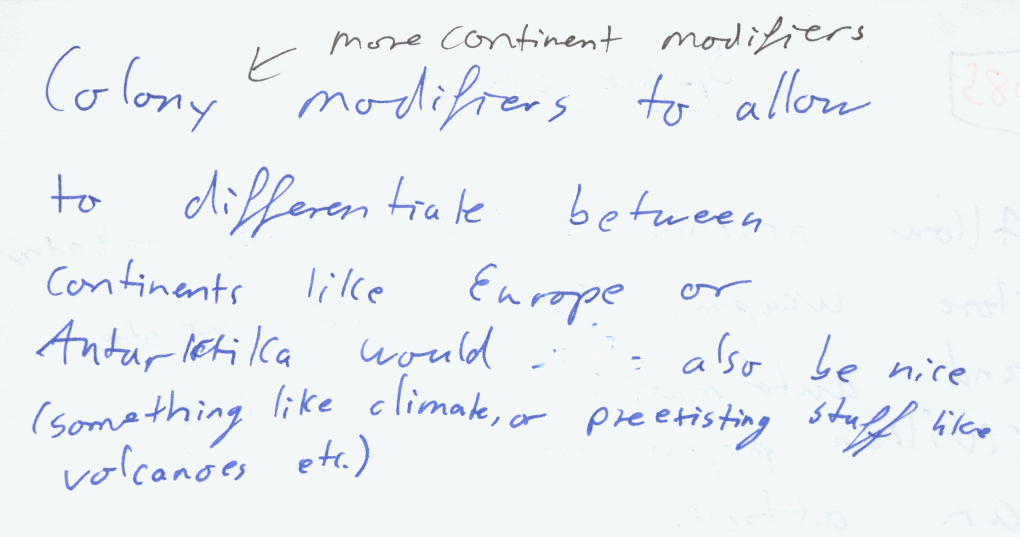 more continent modifiers
Colony modifiers to allow
to differentiate between
continents like Europe or
Antarktika would also be nice
(something like climate, or preexisting stuff like
volcanoes etc.)